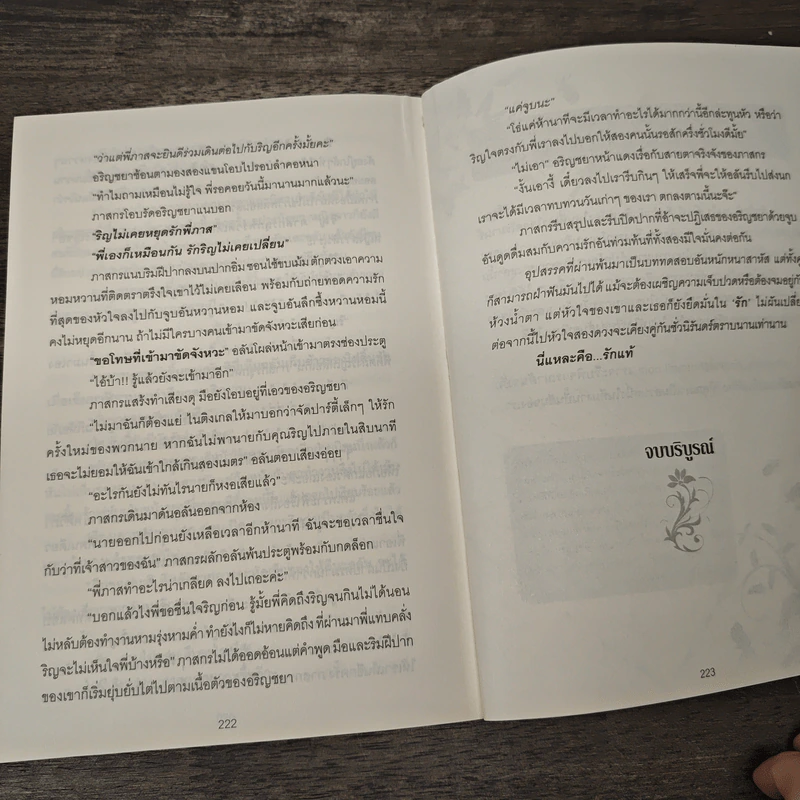 "ว่าแต่พี่ภาสจะยินดีร่วมเดินต่อไปกับริญอีกครั้งมั้ยคะ"
อริญชยาช้อนตามองสองแขนโอบไปรอบลำคอหนา
"ทำไมถามเหมือนไม่รู้ใจ พี่รอคอยวันนี้มานานมากแล้วนะ"
ภาสกรโอบรัดอริญชยาแนบอก
"ริญไม่เคยหยุดรักพี่ภาส"
"พี่เองก็เหมือนกัน รักริญไม่เคยเปลี่ยน"
ภาสกรแนบริมฝีปากลงบนปากอิ่ม ซอนไซ้ขบเม้ม ตักตวงเอาความ
หอมหวานที่ติดตราตรึงใจเขาไว้ไม่เคยเลือน พร้อมกับถ่ายทอดความรัก
ที่สุดของหัวใจลงไปกับจูบอันหวานหอม และจูบอันลึกซึ้งหวานหอมนี้
คงไม่หยุดอีกนาน ถ้าไม่มีใครบางคนเข้ามาขัดจังหวะเสียก่อน
"ขอโทษที่เข้ามาขัดจังหวะ" อลันโผล่หน้าเข้ามาตรงช่องประตู
"ไอ้บ้า!! รู้แล้วยังจะเข้ามาอีก"
ภาสกรแสร้งทำเสียงดุ มือยังโอบอยู่ที่เอวของอริญชยา
"ไม่มาฉันก็ต้องแย่ ไนติงเกลให้มาบอกว่าจัดปาร์ตี้เล็กๆ ให้รัก
ครั้งใหม่ของพวกนาย หากฉันไม่พานายกับคุณริญไปภายในสิบนาที
เธอจะไม่ยอมให้ฉันเข้าใกล้เกินสองเมตร" อลันตอบเสียงอ่อย
"อะไรกันยังไม่ทันไรนายก็หงอเสียแล้ว"
ภาสกรเดินมาดันอลันออกจากห้อง
"นายออกไปก่อนยังเหลือเวลาอีกห้านาที ฉันจะขอเวลาชื่นใจ
กับว่าที่เจ้าสาวของฉัน" ภาสกรผลักอลันพ้นประตูพร้อมกับกดล็อก
"พี่ภาสทำอะไรน่าเกลียด ลงไปเถอะค่ะ"
"บอกแล้วไงพี่ขอชื่นใจริญก่อน รู้มั้ยพี่คิดถึงริญจนกินไม่ได้นอน
ไม่หลับต้องทำงานหามรุ่งหามค่ำ ทำยังไงก็ไม่หายคิดถึง ที่ผ่านมาพี่แทบคลั่ง
ริญจะไม่เห็นใจพี่บ้างหรือ" ภาสกรไม่ได้ออดอ้อนแต่คำพูด มือและริมฝีปาก
ของเขาก็เริ่มยุ่บยั่บไต่ไปตามเนื้อตัวของอริญชยา
222
"แค่จูบนะ"
"โธ่แค่ห้านาทีจะมีเวลาทำอะไรได้มากกว่านี้อีกล่ะทูนหัว หรือว่า
ริญใจตรงกับพี่เราลงไปบอกให้สองคนนั้นรอสักครึ่งชั่วโมงดีมั้ย"
"ไม่เอา" อริญชยาหน้าแดงเรื่อกับสายตาจริงจังของภาสกร
"งั้นเอางี้ เดี๋ยวลงไปเรารีบกินๆ ให้เสร็จพี่จะให้อลันรีบไปส่งนก
เราจะได้มีเวลาทบทวนวันเก่าๆ ของเรา ตกลงตามนี้นะจ๊ะ"
ภาสกรรีบสรุปและรีบปิดปากที่อ้าจะปฏิเสธของอริญชยาด้วยจูบ
อันดูดดื่มสมกับความรักอันท่วมท้นที่ทั้งสองมีใจมั่นคงต่อกัน
อุปสรรคที่ผ่านพ้นมาเป็นบททดสอบอันหนักหนาสาหัส แต่ทั้งคู่
ก็สามารถฝ่าฟันมันไปได้ แม้จะต้องเผชิญความเจ็บปวดหรือต้องจมอยู่กับ
ห้วงน้ำตา แต่หัวใจของเขาและเธอก็ยังยึดมั่นใน 'รัก' ไม่ผันเปลี่ยน
ต่อจากนี้ไปหัวใจสองดวงจะเคียงคู่กันชั่วนิรันดร์ตราบนานเท่านาน
นี่แหละคือ...รักแท้
จบบริบูรณ์
223